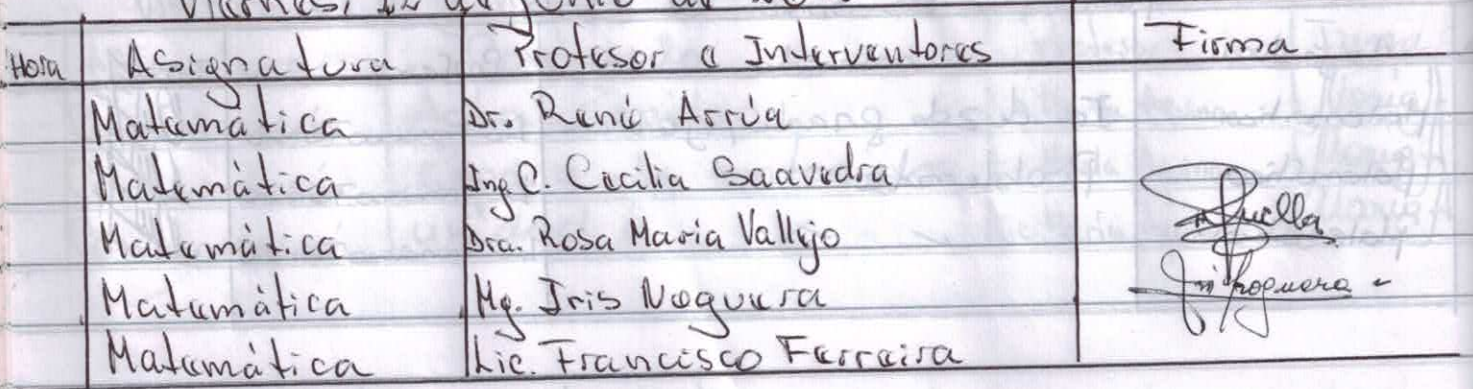 Viernes, 12 de junio de
Hora Asignatura Profesor e Interventores Firma
Matemática Dr. René Arrúa
Matemática Ing C. Cecilia Saavedra
Matemática Dra. Rosa Maria Vallejo
Matemática Mg. Iris Noguera
Matemática Lic. Francisco Ferreira